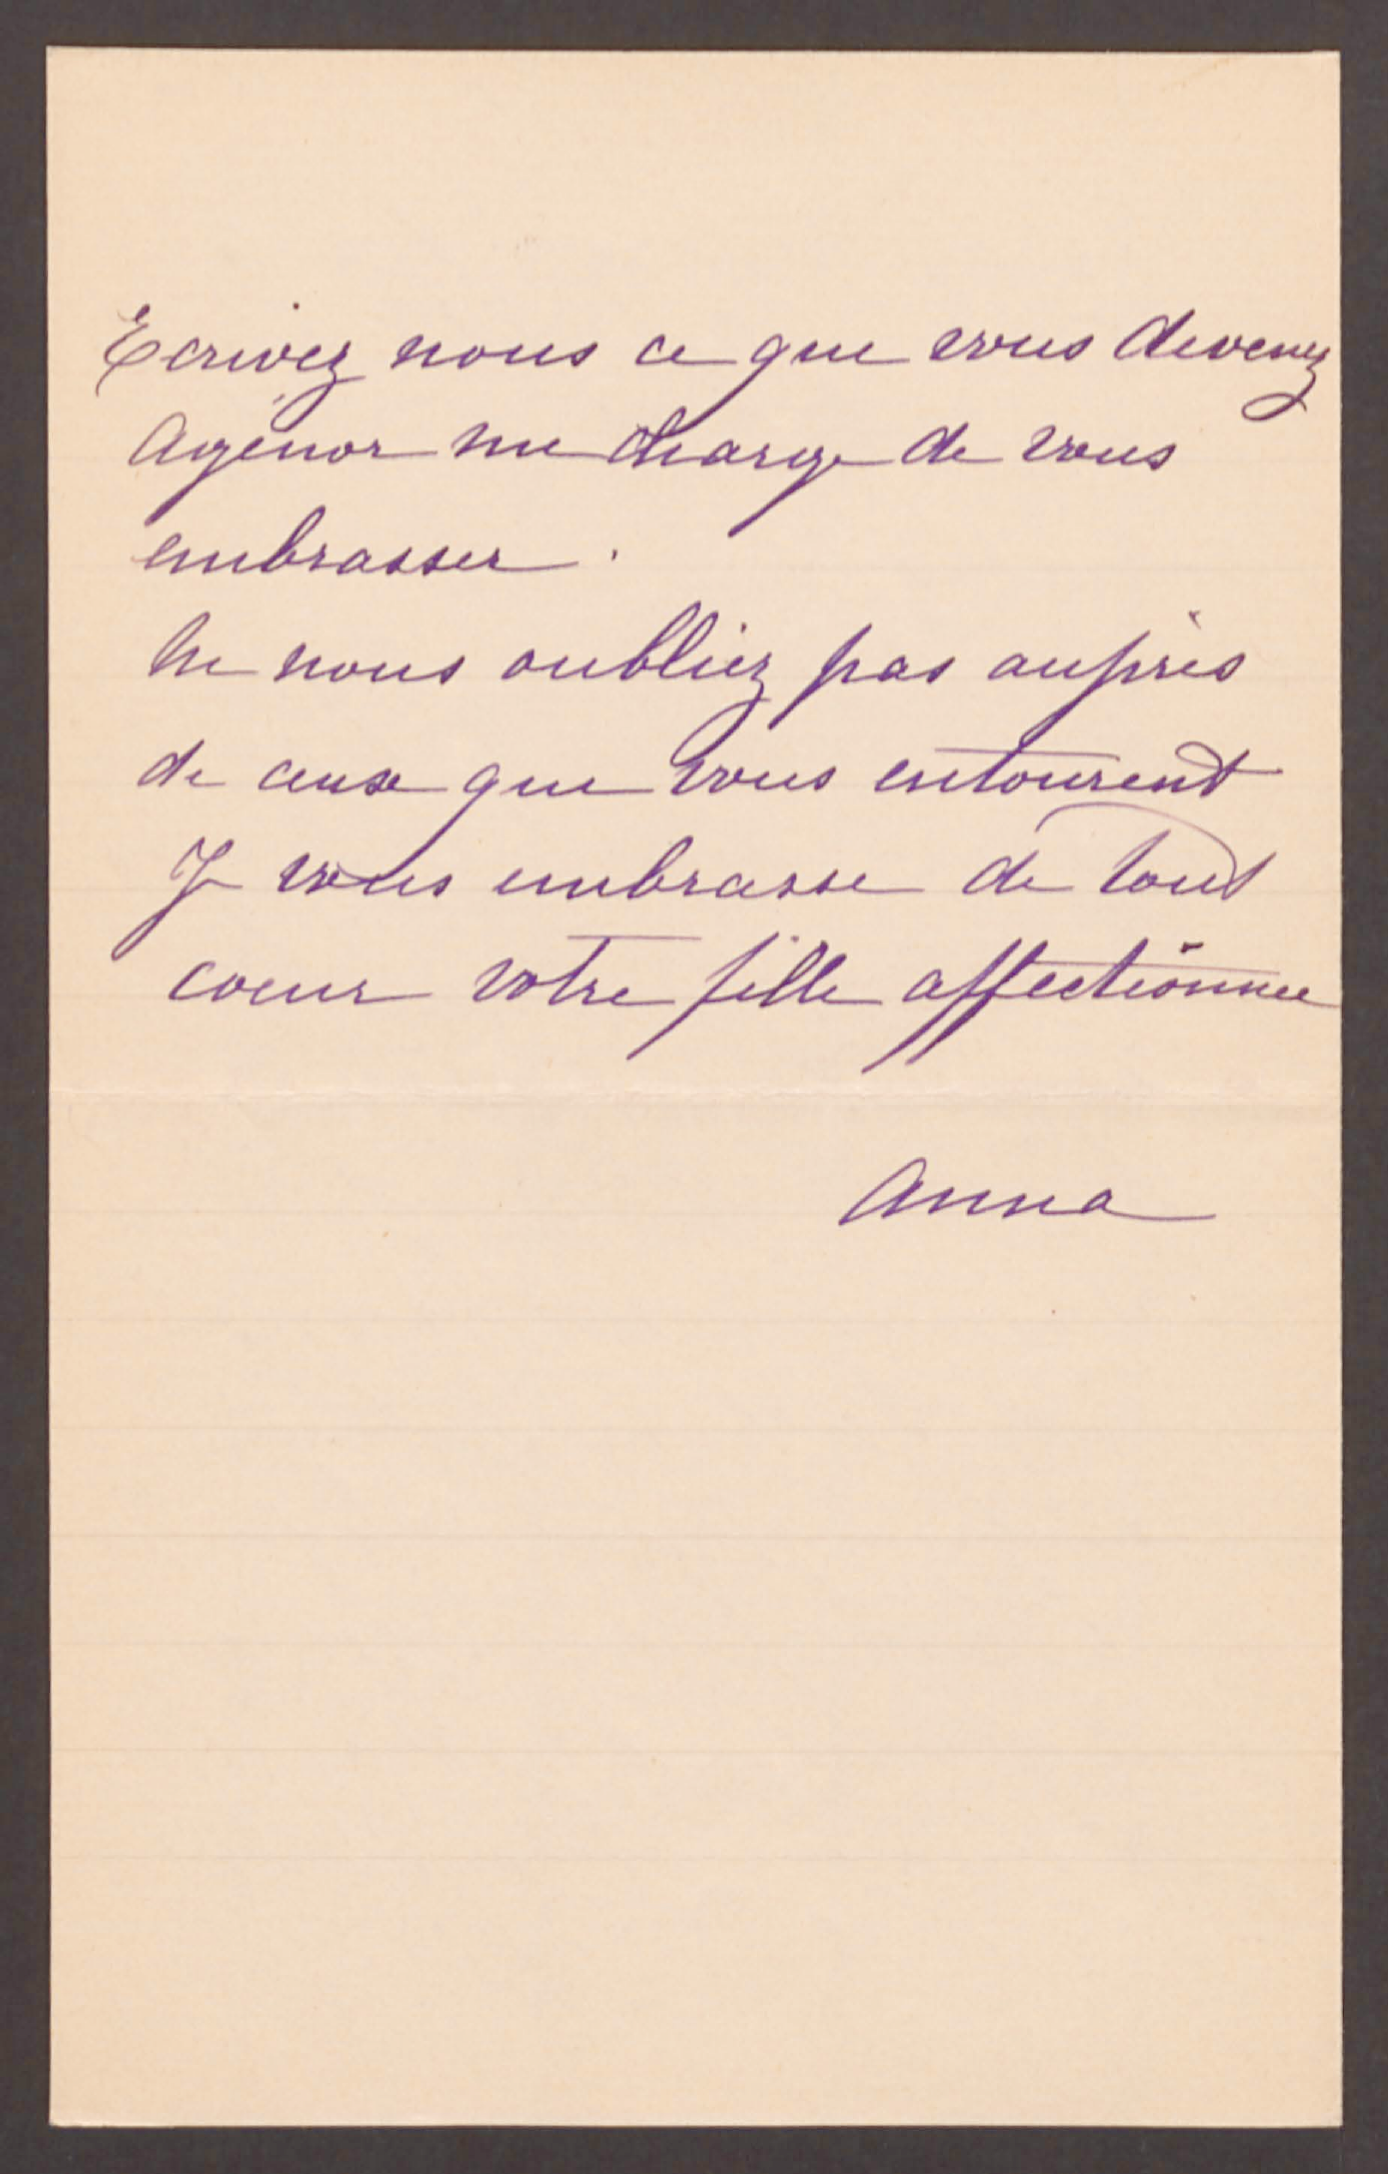 Ecrivez nous ce que vous devenez
Agénor me charge de vous
embrasser.
Ne nous oubliez pas auprès
de ceux que vous entourent
Je vous embrasse de tout
coeur votre fille affectionnée
Anna